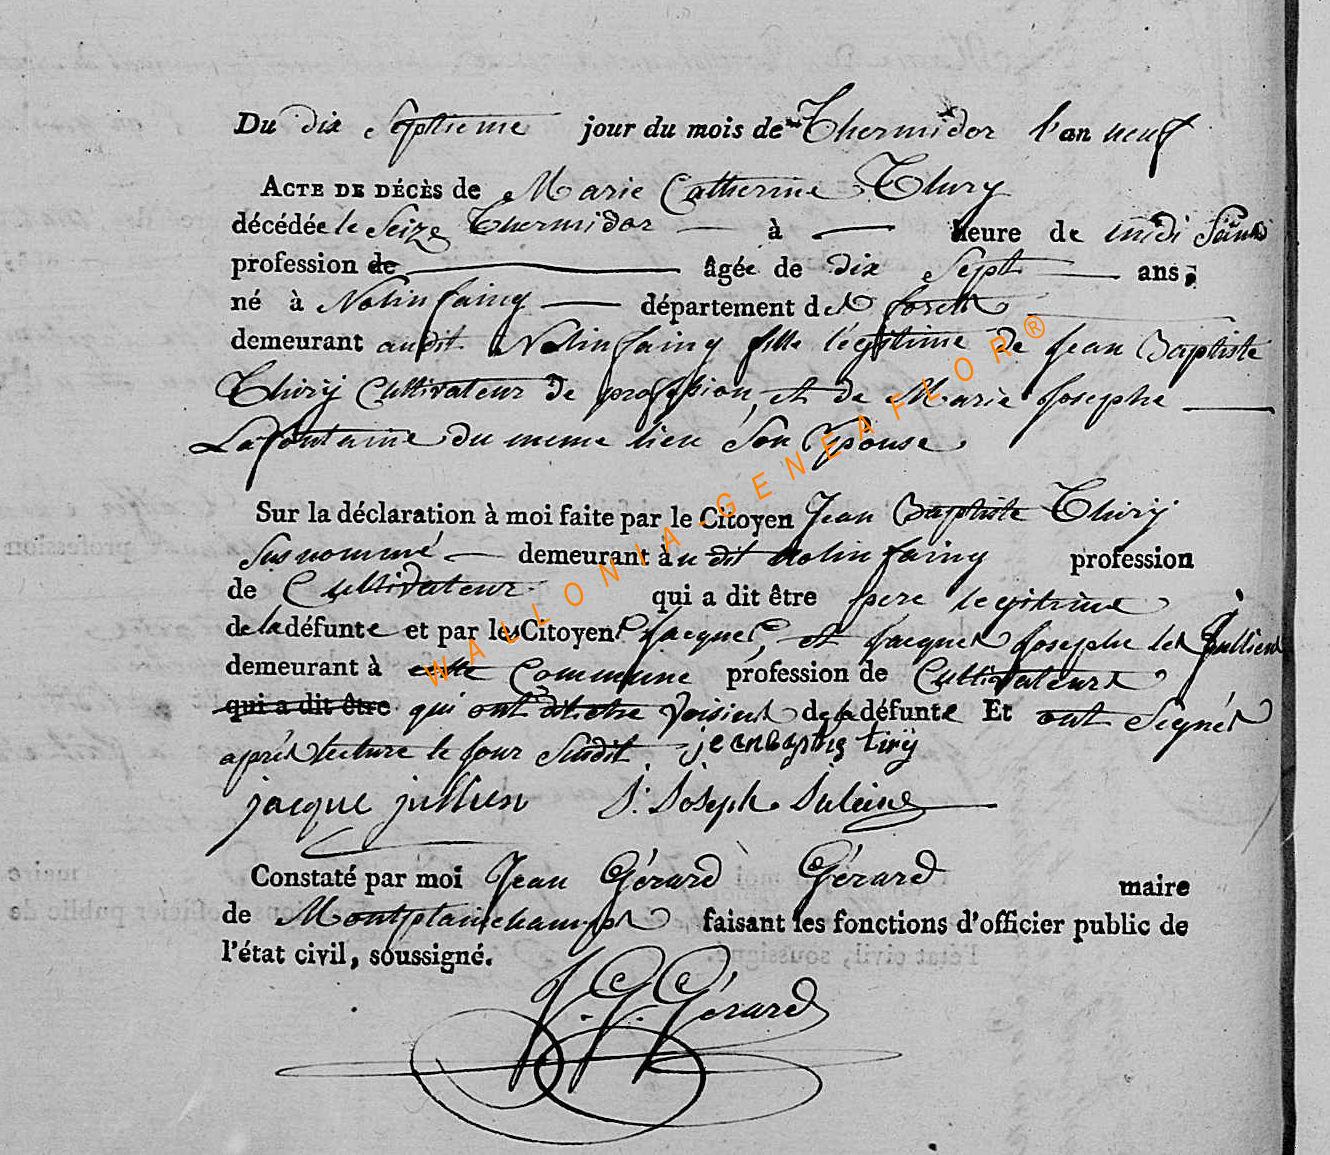 Du dix Septieme jour du mois de Thermidor l'an neuf
ACTE DE DÉCÈS de Marie Catherine Thiry
décédée le Seize Thermidor — à — heure de midi
profession de — âgée de dix Sept — ans;
né à Nolinfaing — département des forets
demeurant audit Nolinfaing fille légitime de Jean Baptiste
Thiry Cultivateur de profession, et de Marie Josephe —
Lafontaine du meme lieu Son Epouse
Sur la déclaration à moi faite par le Citoyen Jean Baptiste Thiry
Susnommé — demeurant àu dit Nolinfaing profession
de Cultivateur qui a dit être pere legitime
de la défunte et par les Citoyens Jacques, et Jacques Josephe les Jullien
demeurant à cette Commune profession de Cultivateurs
qui a dit être qui ont dit etre Voisins de la défunte Et ont Signés
après lecture le Jour Susdit. jean baptis tiry
jacque jullien J: Joseph Julien
Constaté par moi Jean Gérard Gérard maire
de Montplainchamps faisant les fonctions d'officier public de
l'état civil, soussigné.
J. G. Gérard
WALLONIA-GENEAFLOR®